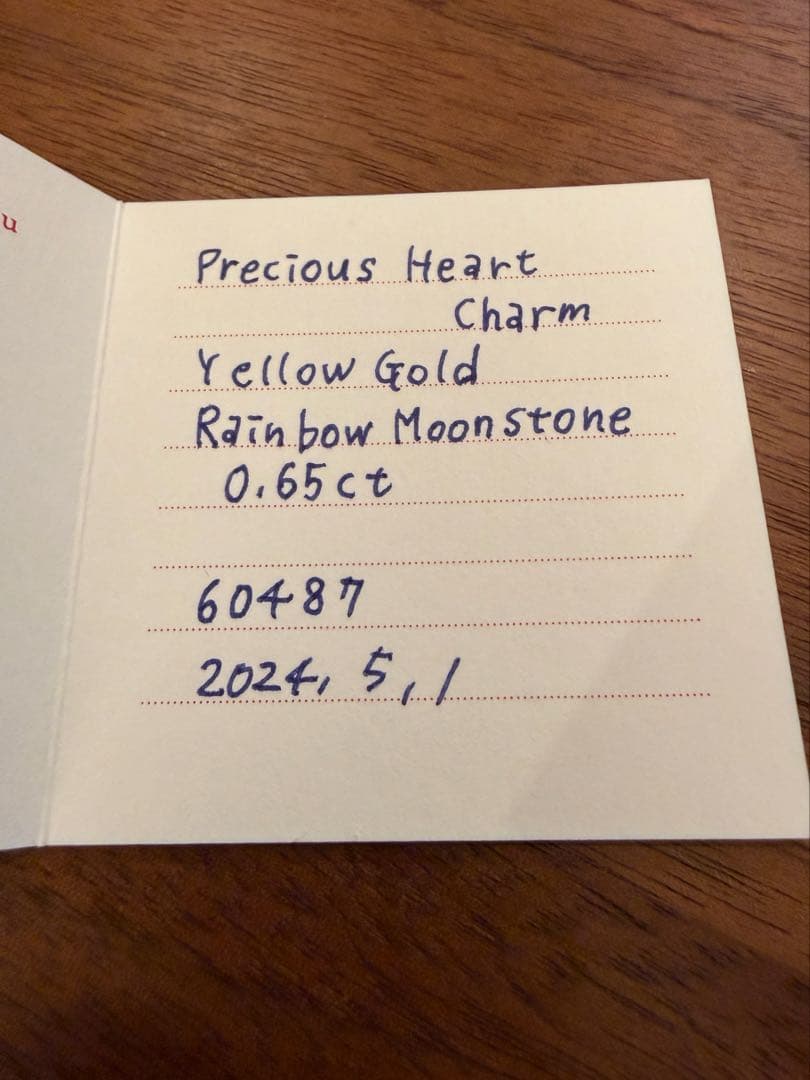 u
Precious Heart
Charm
Yellow Gold
Rainbow Moonstone
0.65ct
60487
2024, 5, 1